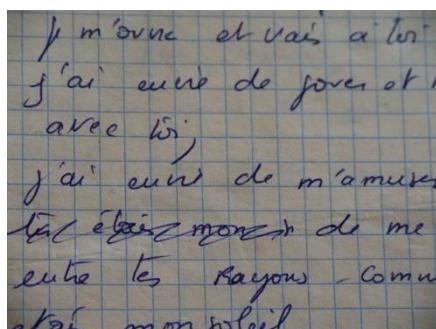 je m'ouvre et vais a toi
j'ai envie de jouer et
avec toi,
j'ai envie de m'amuser
de me
entre tes rayons comm
étai mon soleil